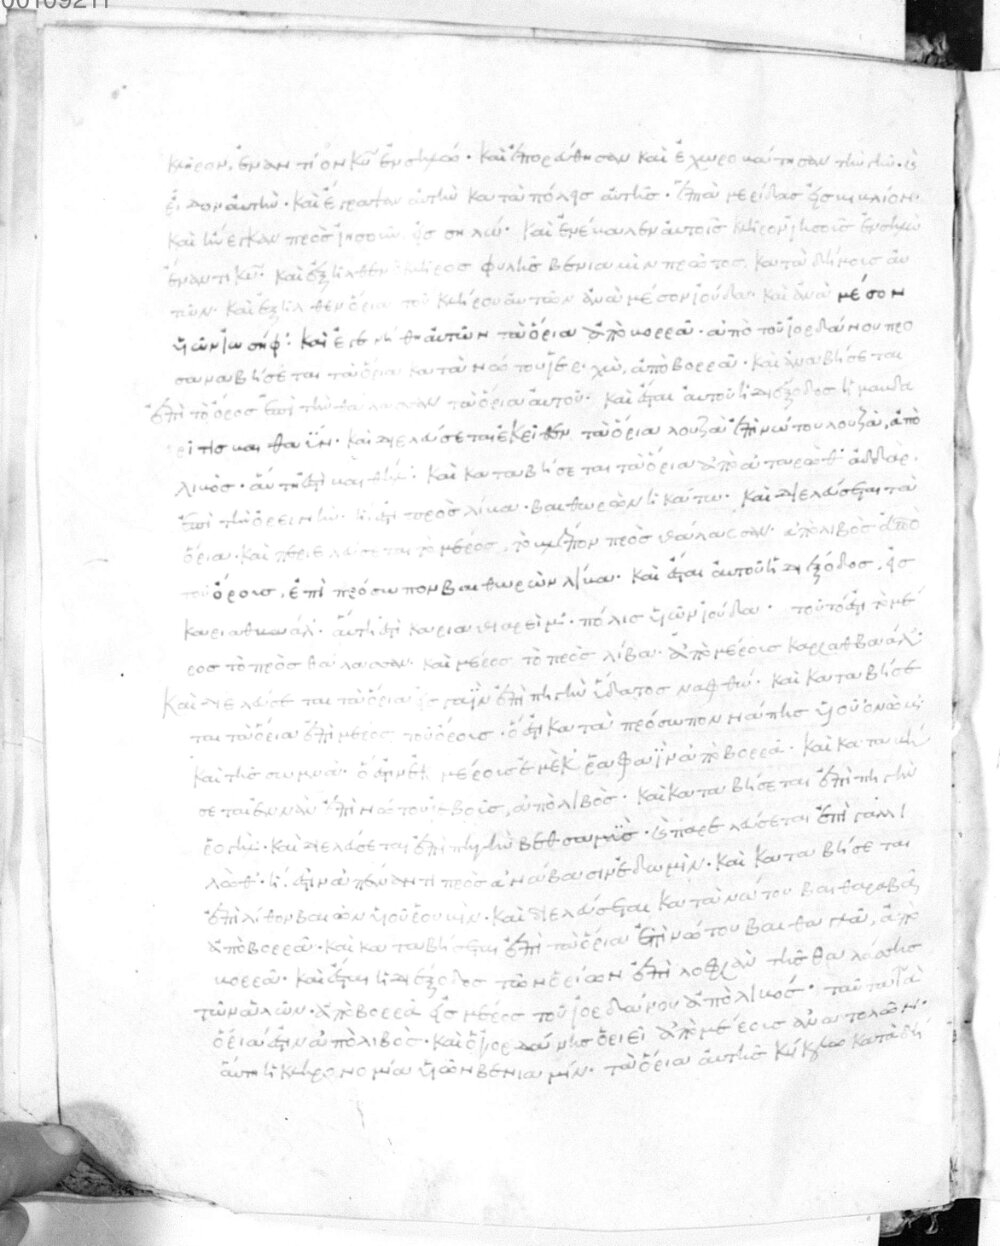 00109211
κλῆρον. ἔναντίον κυ ἐν σηλώ. καὶ ἐπορεύθησαν καὶ ἐχωροβάτησαν τὴν γῆν. καὶ
εἶδον αὐτὴν. καὶ ἔγραψαν αὐτὴν κατὰ πόλεις αὐτῆς. ἑπτὰ μερίδας εἰς βιβλίον.
καὶ ἤνεγκαν πρὸς ἰησοῦν εἰς σηλώ. καὶ ἐνέβαλεν αὐτοῖς κλῆρον ἰησοῦς ἐν σηλὼ
ἔναντι κυ. καὶ ἐξῆλθεν κλῆρος φυλῆς βενιαμὶν πρῶτος κατὰ δήμους αὐ
τῶν. καὶ ἐξῆλθεν ὅρια τοῦ κλήρου αὐτῶν ἀνὰ μέσον ἰούδα. καὶ ἀνὰ μέσον
υἱῶν ἰωσήφ. καὶ ἐγενήθη αὐτῶν τὰ ὅρια ἀπὸ βορρᾶ. ἀπὸ τοῦ ἰορδάνου προ
σαναβήσεται τὰ ὅρια κατὰ νώτου ἱεριχὼ, ἀπὸ βορρᾶ. καὶ ἀναβήσεται
ἐπὶ τὸ ὄρος ἐπὶ τὴν θάλασσαν τὰ ὅρια αὐτοῦ. καὶ ἔσται αὐτοῦ ἡ διέξοδος ἡ μαυδα
ρίτις βαιθαύν. καὶ διελεύσεται ἐκεῖθεν τὰ ὅρια λουζὰ ἐπὶ νώτου λουζὰ, ἀπὸ
λιβός. αὕτη ἐστὶ βαιθήλ. καὶ καταβήσεται τὰ ὅρια ἀπὸ αταρὼθ ἀδδαρ.
ἐπὶ τὴν ὀρεινὴν. ἥ ἐστι πρὸς λίβα. βαιθωρὼν ἡ κάτω. καὶ διελεύσεται τὰ
ὅρια. καὶ περιελεύσεται τὸ μέρος, τὸ βλέπον πρὸς θάλασσαν. ἀπὸ λιβὸς ἀπὸ
τοῦ ὄρους, ἐπὶ πρόσωπον βαιθωρὼν λίβα. καὶ ἔσται αὐτοῦ ἡ διέξοδος, εἰς
καριαθβαάλ. αὕτη ἐστὶ καριαθιαρείμ. πόλις υἱῶν ἰούδα. τοῦτό ἐστι τὸ μέ
ρος τὸ πρὸς θάλασσαν. καὶ μέρος τὸ πρὸς λίβα. ἀπὸ μέρους καριαθβαάλ.
καὶ διελεύσεται τὰ ὅρια εἰς γαὶν ἐπὶ πηγὴν ὕδατος ναφθώ. καὶ καταβήσε
ται τὰ ὅρια ἐπὶ μέρος τοῦ ὄρους. ὅ ἐστι κατὰ πρόσωπον νάπης υἱοῦ
ἐπὶ νώτου ἰεβοῦς, ἀπὸ λιβὸς. καὶ καταβήσεται ἐπὶ πηγὴν
ῥογὴλ. καὶ διελεύσεται ἐπὶ πηγὴν βεθσαμὺς. καὶ παρελεύσεται ἐπὶ γαλι
λὼθ. ἥ ἐστιν ἀπέναντι πρὸς ἀνάβασιν ἐδωμὶν. καὶ καταβήσεται
ἐπὶ λίθον βαιὼν υἱοῦ ῥουβὶν. καὶ διελεύσεται κατὰ νώτου βαιθαραβὰ
ἀπὸ βορρᾶ. καὶ καταβήσεται ἐπὶ τὰ ὅρια ἐπὶ νώτου ἀπὸ
βορρᾶ. καὶ ἔσται ἡ διέξοδος τῶν ὁρίων ἐπὶ λοφιὰν τῆς θαλάσσης
τῶν ἁλῶν. ἀπὸ βορρᾶ εἰς μέρος τοῦ ἰορδάνου ἀπὸ λιβός. ταῦτα τὰ
ὅριά ἐστιν ἀπὸ λιβός. καὶ ὁ ἰορδάνης ὁριεῖ ἀπὸ μέρους ἀνατολῶν.
αὕτη ἡ κληρονομία υἱῶν βενιαμίν. τὰ ὅρια αὐτῆς κύκλω κατὰ δή